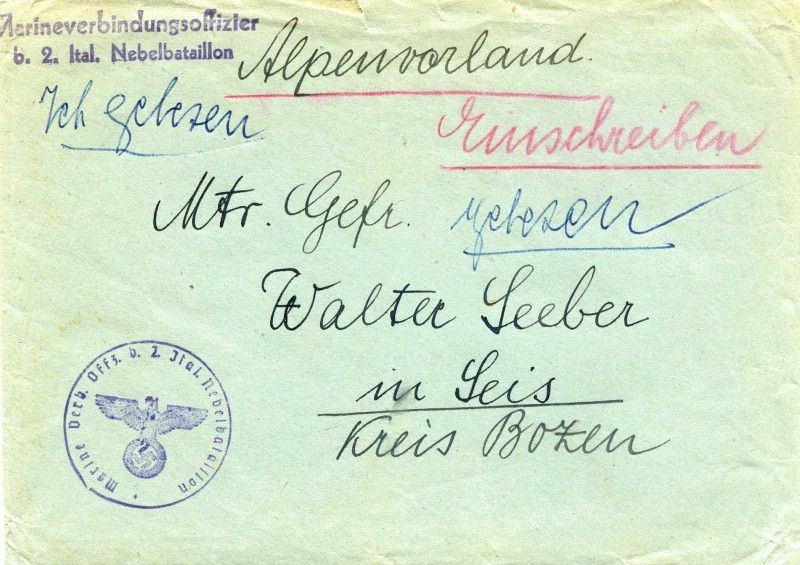 Marineverbindungsoffizier
b. 2. Ital. Nebelbataillon
Alpenvorland.
Ich gelesen
Einschreiben
Mtr. Gefr.
gelesen
Walter Seeber
in Seis
Kreis Bozen
Marine Verb. Offz. b. 2. Ital. Nebelbataillon